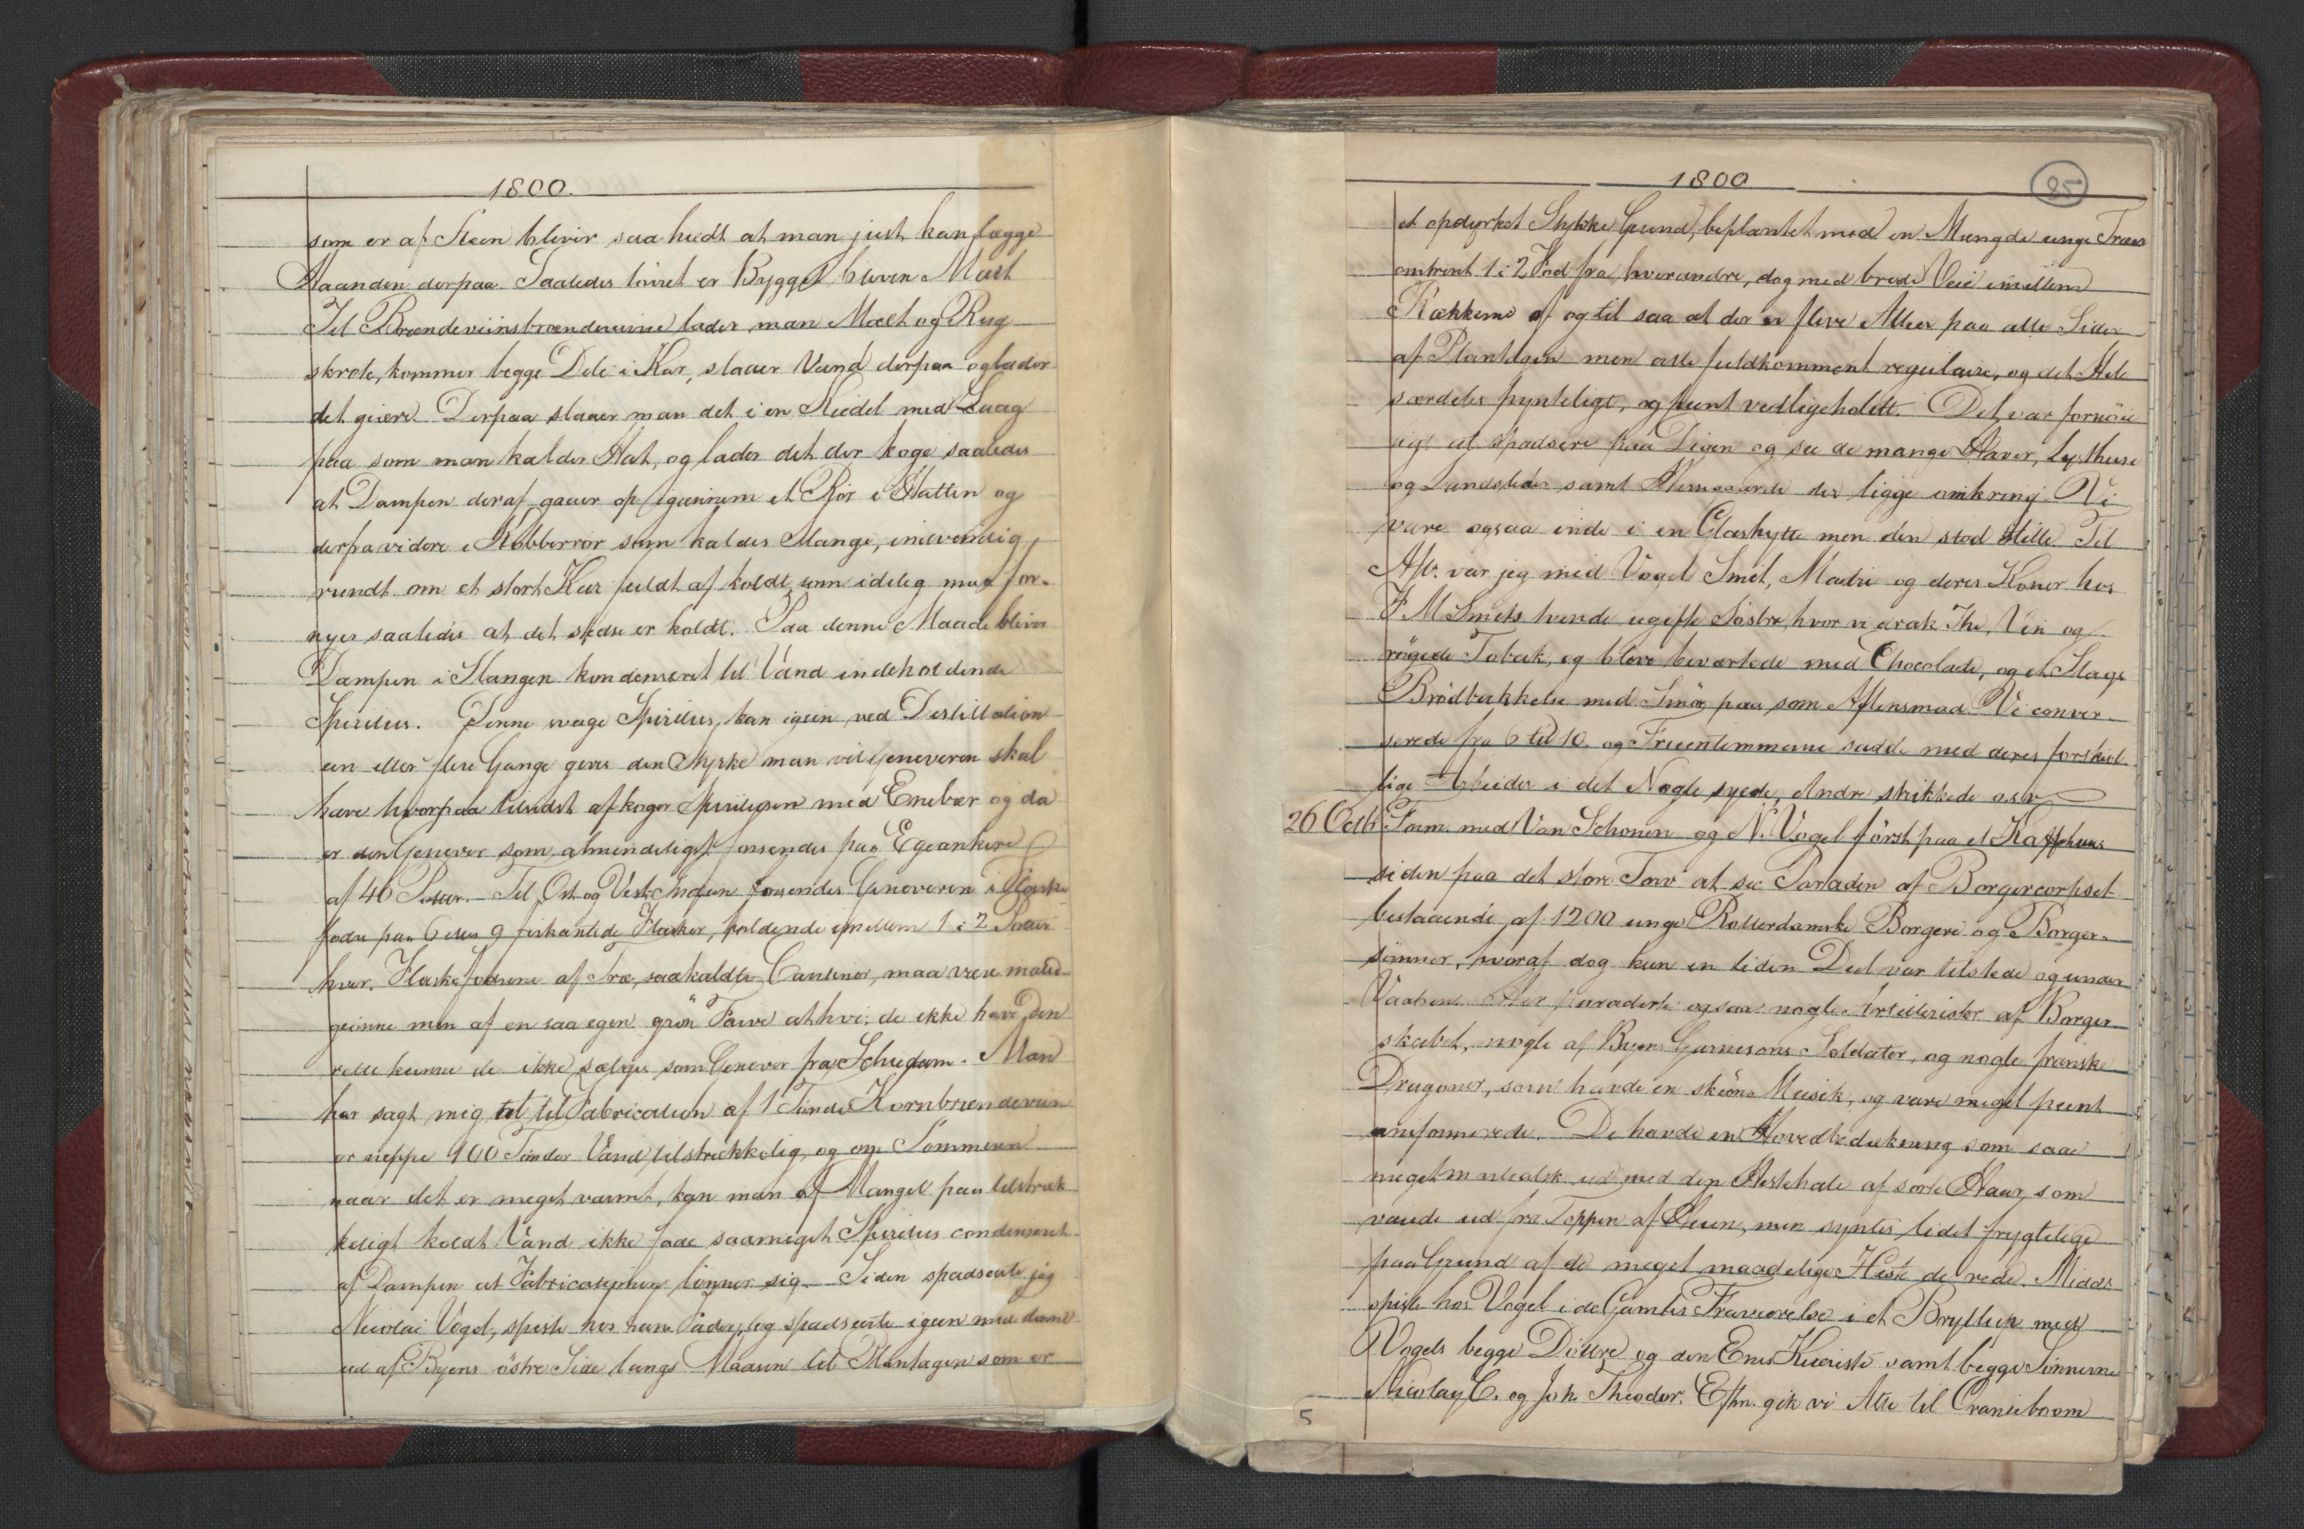 1800.
som er af Steen bliver saa hedt at man just kan lægge
Haanden derpaa. Saaledes tørret er Bygget bleven Malt
Til Brændeviinsbrænderierne lader man Malt og Rug
skrote, kommer begge Dele i Kar, slaaer Vand derpaa og lader
det giære. Derpaa slaaer man det i en Kiedel med Laag
paa som man kalder Hat, og lader det der koge saaledes
at Dampen deraf gaaer op igiennem et Rør i Hatten og
derpa videre i Kobberrør som kaldes Slange, indvendig
rundt om et stort Kar fuldt af koldt som idelig maa for-
nyes saaledes at det stedse er koldt. Paa denne Maade bliver
Dampen i Slangen kondenseret til Vand indeholdende
Spiritus. Denne svage Spiritus, kan igien ved Destillation
een eller flere Gange gives den Styrke man vil Geneveren skal
have hvorpaa tilsidst afkoger Spiritusen med Enebær og da
er den Genever som almindeligst forsendes paa Egeankere
af 46 Potter. Til Ost og Vest-Indien forsendes Geneveren i Flaske
fodre paa 6 eller 9 firkantede Flasker, holdende imellem 1 à 2 Potter
hver. Flaskefodrene af Træ, saakaldte Cantiner, maa være malede
men af en saa egen grøn Farve at hvis de ikke have Den
rette kunne de ikke sælges som Genever fra Schiedam. Man
har sagt mig at til Fabrication af 1 Tønde Kornbrændeviin
er neppe 100 Tønder Vand tilstrækkelig, og om Sommeren
naar det er meget varmt, kan man af Mangel paa tilstræk
keligt koldt Vand ikke faae saameget Spiritus condenseret
af Dampen at Fabricationen lønner sig. Siden spadserte jeg
Nicolai Vogel, spiste hos hans Fader, og spadserte igien med denne
ud af Byens østre Side langs Maasen til Plantagen som er
1800
25
et opdyrket Stykke Grund, beplantet med en Mængde unge Træer
omtrent 1 à 2 Fod fra hverandre, dog med brede Veie imellem
Rækkerne af og til saa at der er flere Alleer paa alle Sider
af Plantagen men alle fuldkomment regulaire, og det Hele
særdeles pynteligt, og pent vedligeholdt. Det var fornøie
ligt at spadsere paa Digen og see de mange Haver, Lysthuse
og Landsteder samt der ligge omkring. Vi
vare ogsaa inde i en Glashytte men den stod stille Til
Aft. var jeg med Vogel Smit, Madri og deres Koner hos
F M Smits tvende ugifte Søstre, hvor vi drak The, Vin og
røgede Tobak, og bleve beværtede med Chocolade, og et Slags
Brødbakkelse med Smør paa som Aftensmad. Vi conver-
serede fra 6 til 10. og Fruentimmerne sadde med deres forskiel
lige Arbeider i det Nogle syede, Andre strikkede o.s.v.
26 Octb. Form. med Van Schonen og N. Vogel først paa et Kaffehuus
siden paa det store Torv at see Paraden af Borgercorpset
bestaaende af 1200 unge Rotterdamske Borgere og Borger-
sønner, hvoraf dog kun en liden Deel var tilstede og under
Vaaben. Der paraderte ogsaa nogle Artillerister af Borger
skabet, nogle af Byens Garnisons Soldater, og nogle franske
Dragoner, som havde en skiøn Musik, og vare meget peent
uniformerede. De havde en Hovedbedækning som saae
meget martialsk ud med den Hestehale af sorte Haar, som
vaiede ud fra Toppen af Huen, men syntes lidet frygtelige
paa Grund af de meget maadelige Heste de rede. Midds
spiste hos Vogel i de Gamles Fraværelse i et Bryllup med
Vogels begge Døttre og den Enes Kiæriste samt begge Sønnerne
Nicolay C. og Joh. Theodor. Eftm. gik vi Alle til Oranieboom
5